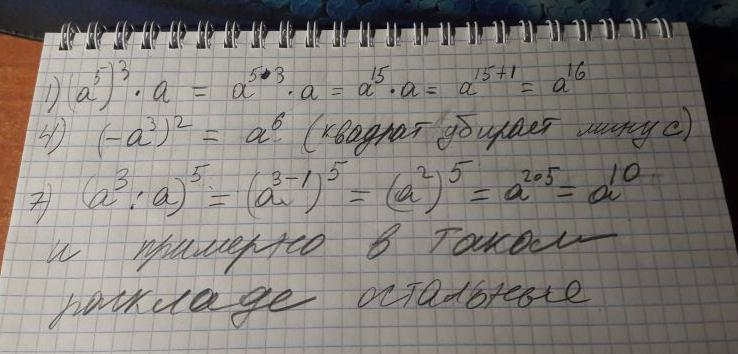 1) (a⁵)³ · a = a⁵·³ · a = a¹⁵ · a = a¹⁵⁺¹ = a¹⁶
4) (-a³)² = a⁶ (квадрат убирает минус)
7) (a³ : a)⁵ = (a³⁻¹)⁵ = (a²)⁵ = a²·⁵ = a¹⁰
и примерно в таком
роскладе остальные